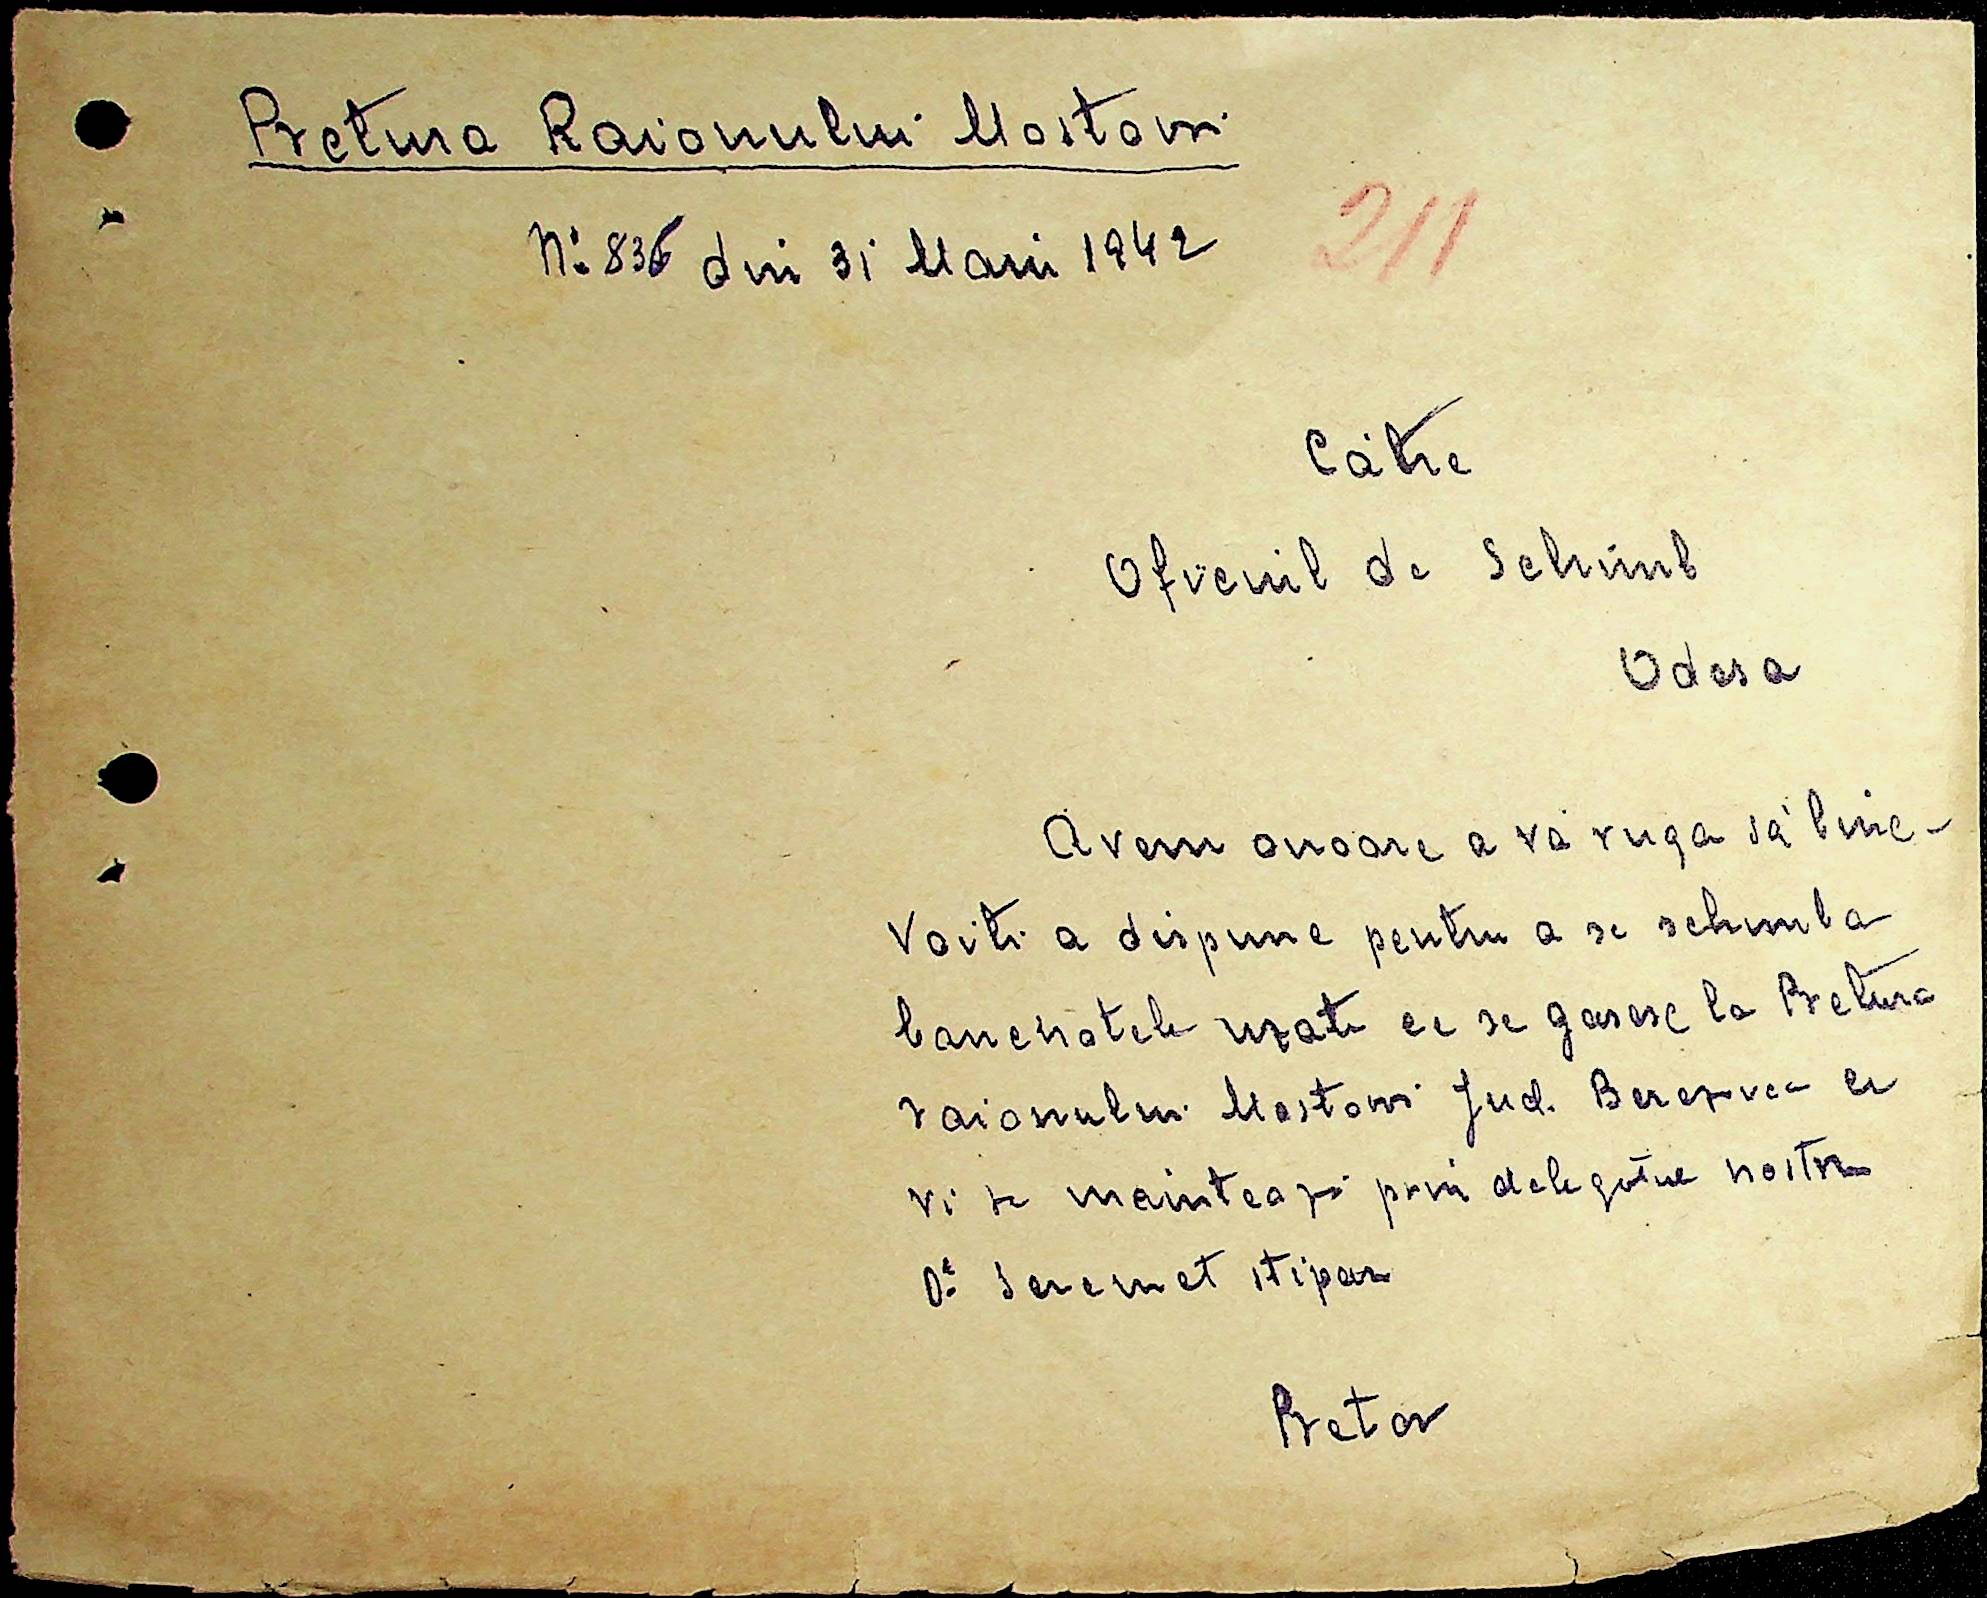 Pretura Raionului Mostovoi
No 836 din 31 Mai 1942
211
Către
Oficiul de Schimb
Odesa
Avem onoare a vă ruga să bine-
voiti a dispune pentru a se schimba
bancnotele uzate ce se gasesc la Pretura
raionului Mostovoi Jud. Berezovca ce
vi se mainteaza prin delegatul nostru
Dl Seremet Stipan
Pretor